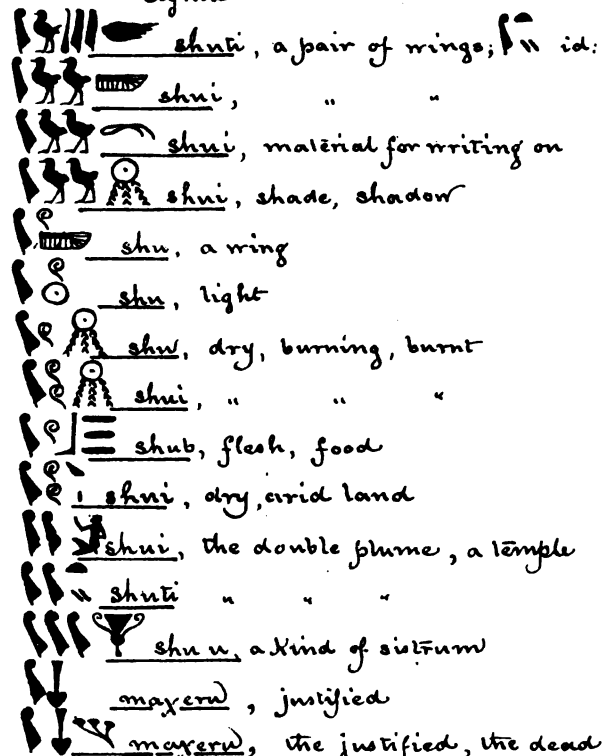 shuti, a pair of wings; id:
shui, " "
shui, material for writing on
shui, shade, shadow
shu, a wing
shu, light
shu, dry, burning, burnt
shui, " " "
shub, flesh, food
shui, dry, arid land
shui, the double plume, a temple
shuti " " "
shu u, a kind of sistrum
maxeru, justified
maxeru, the justified, the dead